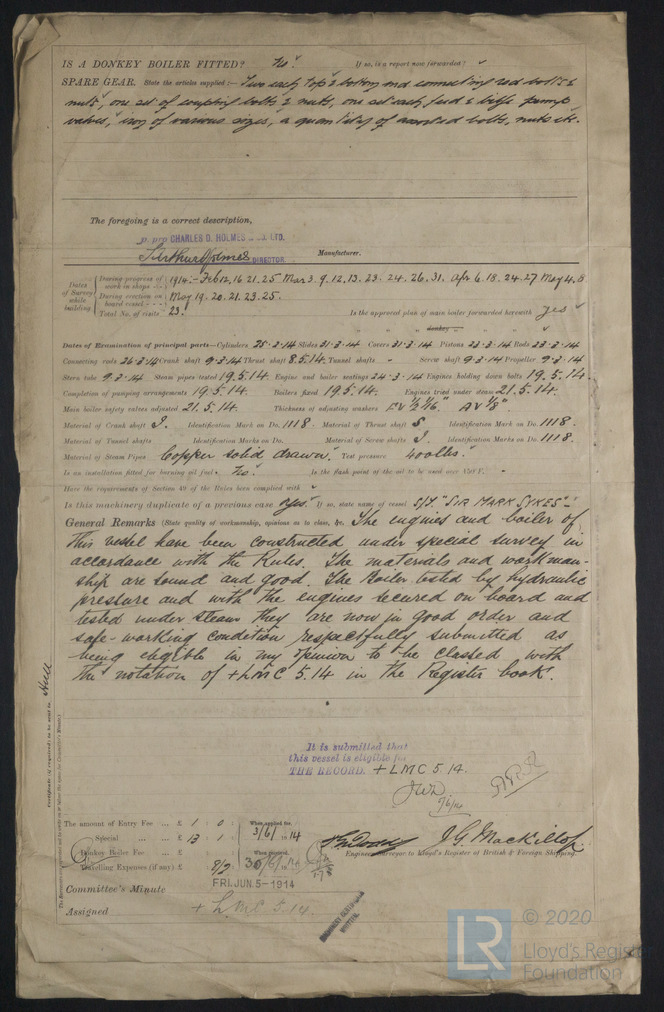 IS A DONKEY BOILER FITTED? No. If so, is a report now forwarded?
SPARE GEAR. State the articles supplied:— Two each top & bottom end connecting rod bolts &
nuts, one set of coupling bolts & nuts, one set each feed & bilge pump
valves, iron of various sizes, a quantity of assorted bolts, nuts etc.
The foregoing is a correct description,
p. pro CHARLES D. HOLMES & CO. LTD.
Arthur Holmes DIRECTOR. Manufacturer.
Dates of Survey while building
During progress of work in shops - - 1914:- Feb 12, 16 21. 25 Mar 3. 9. 12, 13. 23. 24. 26. 31. Apr 6. 18. 24. 27 May 4, 8
During erection on board vessel - - May 19. 20. 21. 23. 25.
Total No. of visits 23. Is the approved plan of main boiler forwarded herewith Yes
" " " donkey " " "
Dates of Examination of principal parts—Cylinders 25-2-14 Slides 31-3-14 Covers 31-3-14 Pistons 23-3-14 Rods 23-3-14
Connecting rods 26-3-14 Crank shaft 9-3-14 Thrust shaft 8.5.14. Tunnel shafts - Screw shaft 9-3-14 Propeller 9-3-14
Stern tube 9-3-14 Steam pipes tested 19.5.14. Engine and boiler seatings 24-3-14 Engines holding down bolts 19.5.14.
Completion of pumping arrangements 19.5.14. Boilers fixed 19.5.14. Engines tried under steam 21.5.14.
Main boiler safety valves adjusted 21.5.14. Thickness of adjusting washers
Material of Crank shaft Identification Mark on Do. 1118. Material of Thrust shaft S Identification Mark on Do. 1118.
Material of Tunnel shafts Identification Marks on Do. Material of Screw shafts Identification Marks on Do. 1118.
Material of Steam Pipes Copper solid drawn. Test pressure 400 lbs.
Is an installation fitted for burning oil fuel No. Is the flash point of the oil to be used over 150°F. -
Have the requirements of Section 49 of the Rules been complied with
Is this machinery duplicate of a previous case Yes. If so, state name of vessel S/T. "SIR MARK SYKES"
General Remarks (State quality of workmanship, opinions as to class, &c. The engines and boiler of
this vessel have been constructed under special survey in
accordance with the Rules. The materials and workman-
ship are sound and good. The boiler tested by hydraulic
pressure and with the engines secured on board and
tested under steam they are now in good order and
safe-working condition respectfully submitted as
being elegible in my opinion to be classed with
the notation of +LMC 5.14 in the Register book.
Certificate (if required) to be sent to Hull
It is submitted that
this vessel is eligible for
THE RECORD. + LMC 5.14.
JWD
The amount of Entry Fee ... £ 1 : 0 : When applied for,
Special ... ... £ 13 : 1 : 3/6/14
Donkey Boiler Fee ... £ When received,
Travelling Expenses (if any) £ 30/6/14
J.G. Mackillop
Engineer Surveyor to Lloyd's Register of British & Foreign Shipping.
Committee's Minute FRI. JUN. 5 - 1914
Assigned + LMC 5.14.
MACHINERY CERTIFICATE
WRITTEN.
LR
© 2020
Lloyd's Register
Foundation